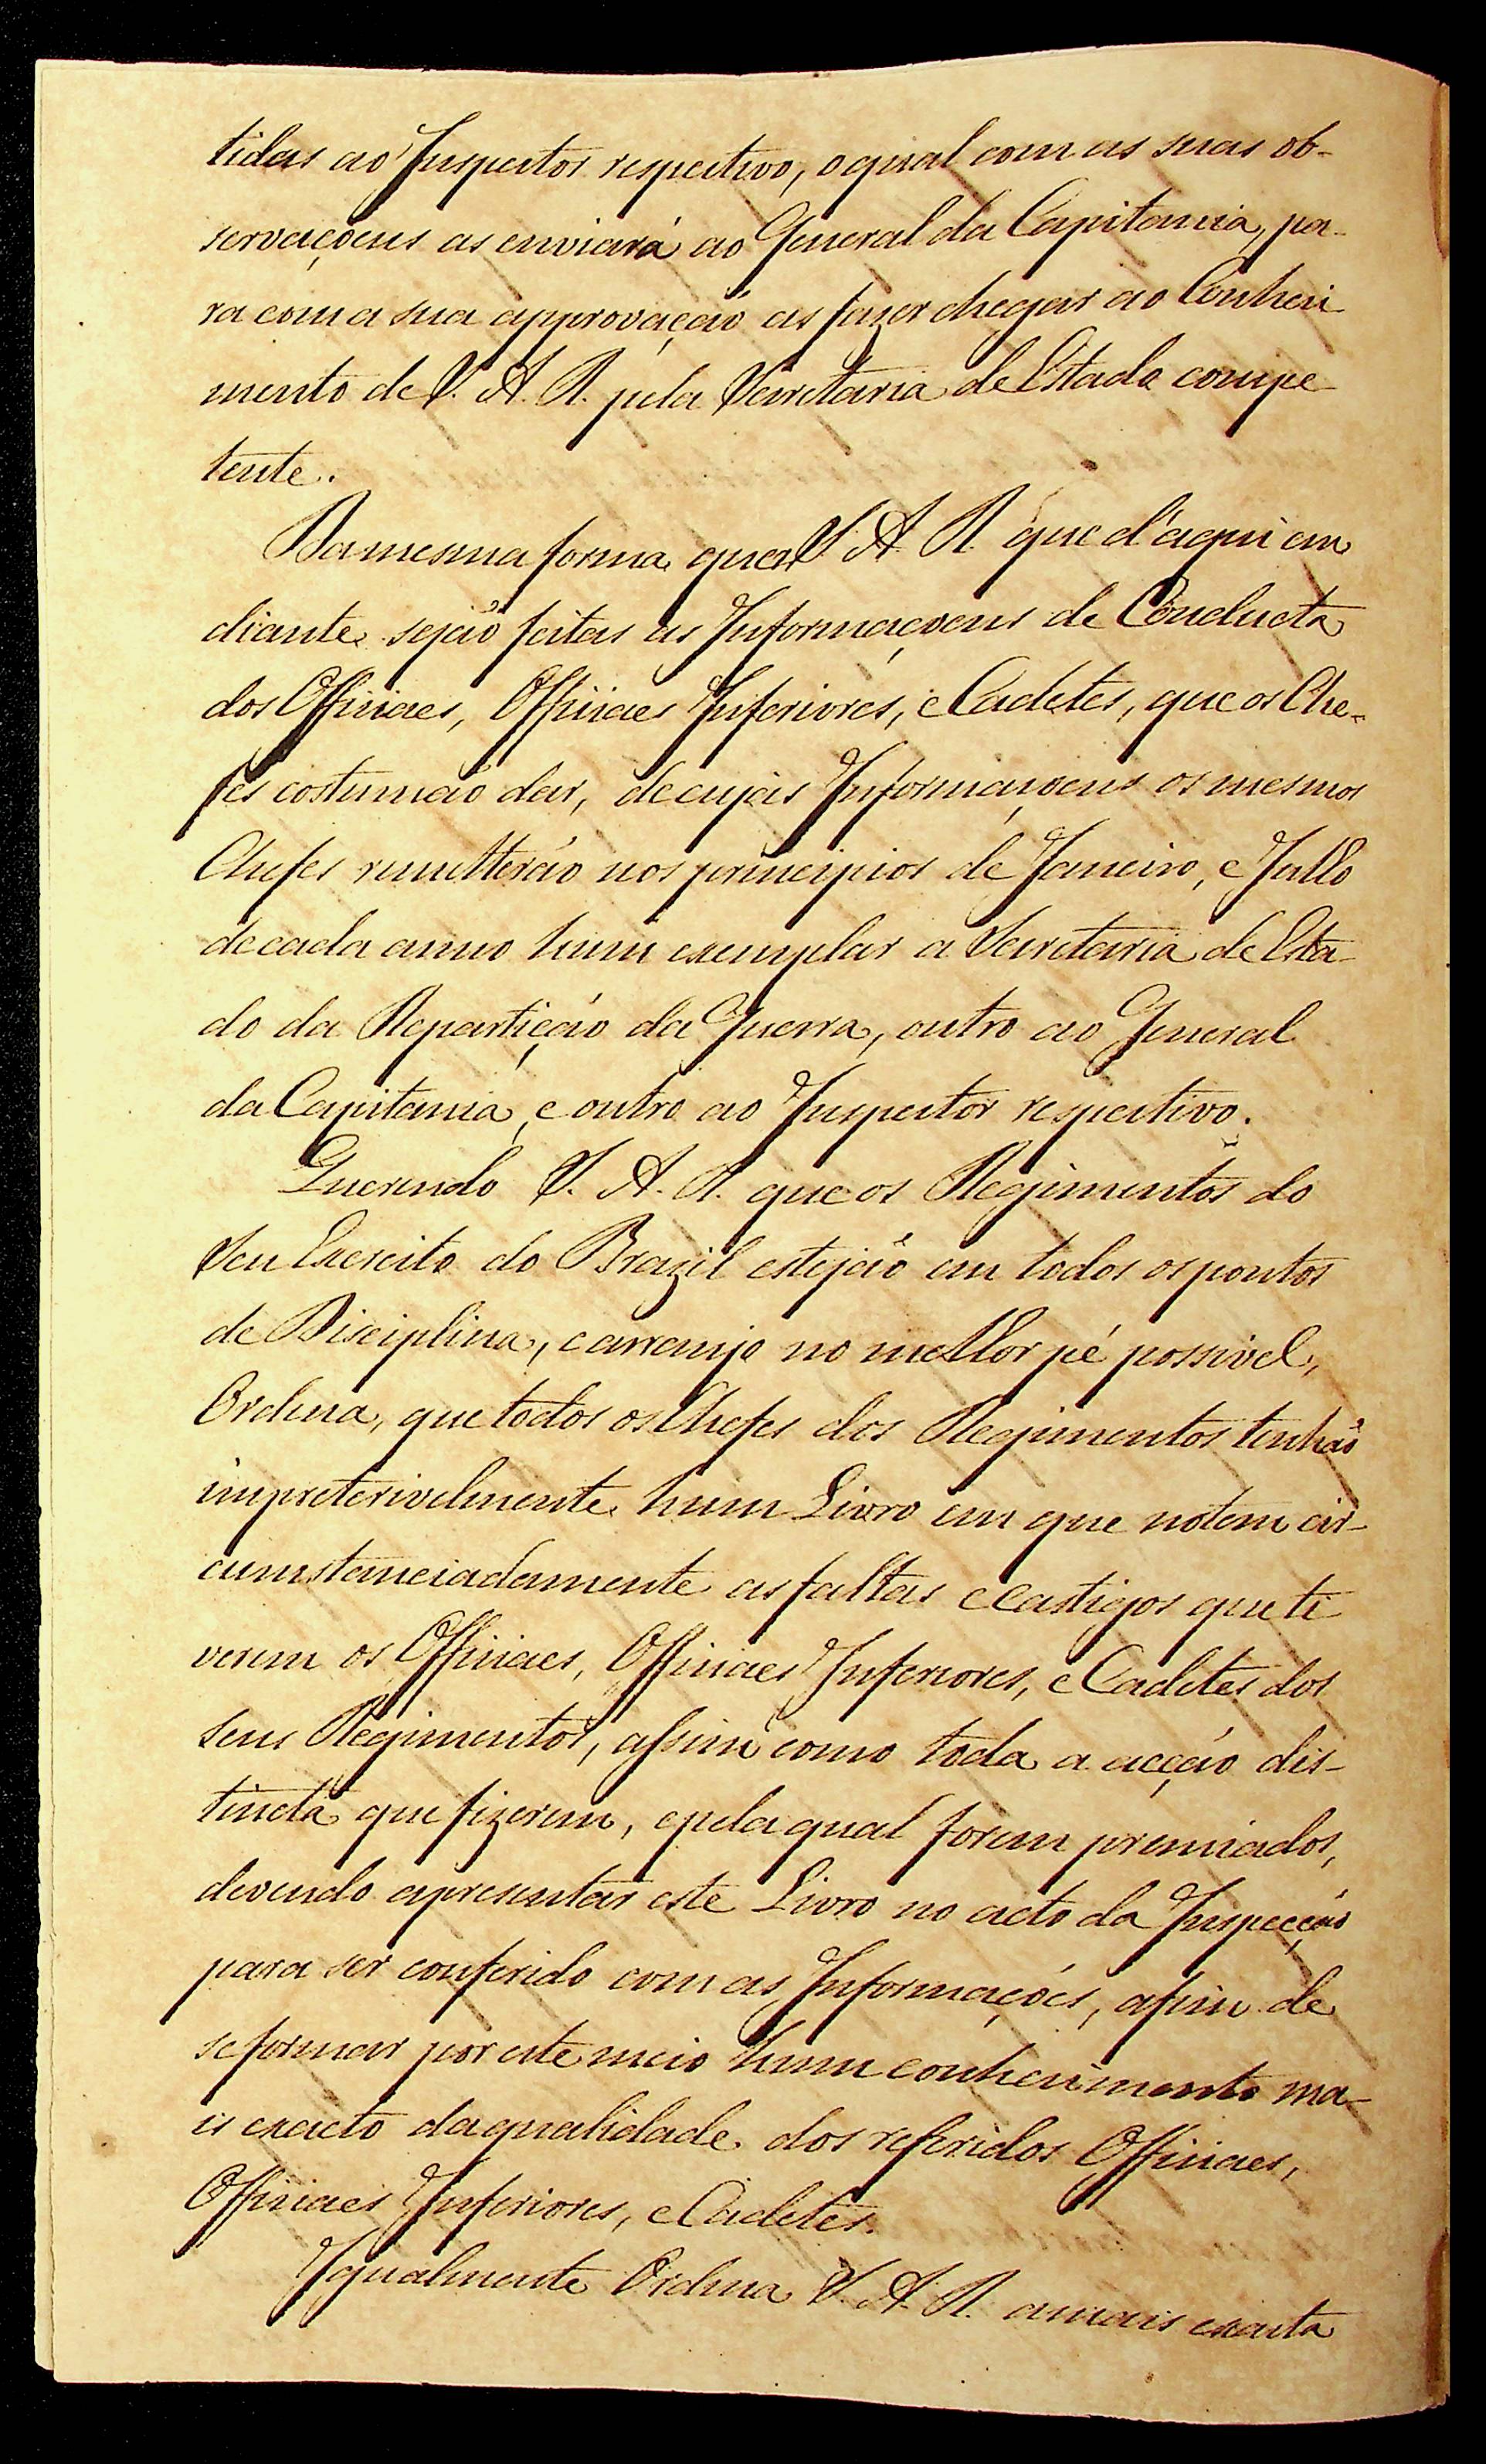 tidas ao Inspector respectivo, o qual com as suas ob-
servaçoens as enviará ao General da Capitania, pa-
ra com a sua approvação as fazer chegar ao Conheci
mento de S. A. R. pela Secretaria de Estado compe
tente.
Da mesma forma quer S. A. R. que d'aqui em
diante sejão feitas as Informaçoens de Conducta
dos Officiaes, Officiaes Inferiores, e Cadetes, que os Che-
fes costumão dar, de cujas Informaçoens os mesmos
Chefes remetterão nos principios de Janeiro, e Julho
de cada anno hum exemplar a Secretaria de Esta
do da Repartição da Guerra, outro ao General
da Capitania, e outro ao Inspector respectivo.
Querendo S. A. R. que os Regimentos do
Seu Exercito do Brazil estejão em todos os pontos
de Disciplina, e arranjo no melhor pé possivel,
Ordena, que todos os Chefes dos Regimentos tenhão
impreterivelmente hum Livro em que notem cir-
cumstanciadamente as faltas e castigos que ti
verem os Officiaes, Officiaes Inferiores, e Cadetes dos
seus Regimentos, assim como toda a acção dis-
tincta que fizerem, e pela qual forem premiados,
devendo apresentar este Livro no acto da Inspecção
para ser conferido com as Informações, afim de
se formar por este meio hum conhecimento ma-
is exacto da qualidade dos referidos Officiaes,
Officiaes Inferiores, e Cadetes.
Igualmente Ordena S. A. R. a mais exacta